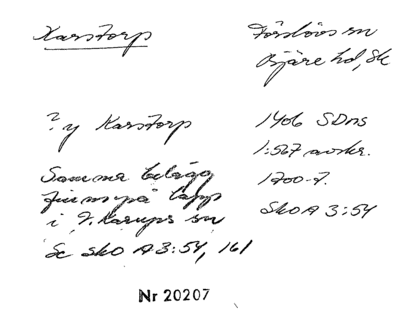 Karstorp
Förslövs sn
Bjäre hd, Sk
? y Karstorp
1406 SDns
1:567 avskr.
1700-t.
SkoA 3:54
Samma belägg
finns på lapp
i V. Karups sn
Se SkoA 3:54, 161
Nr 20207